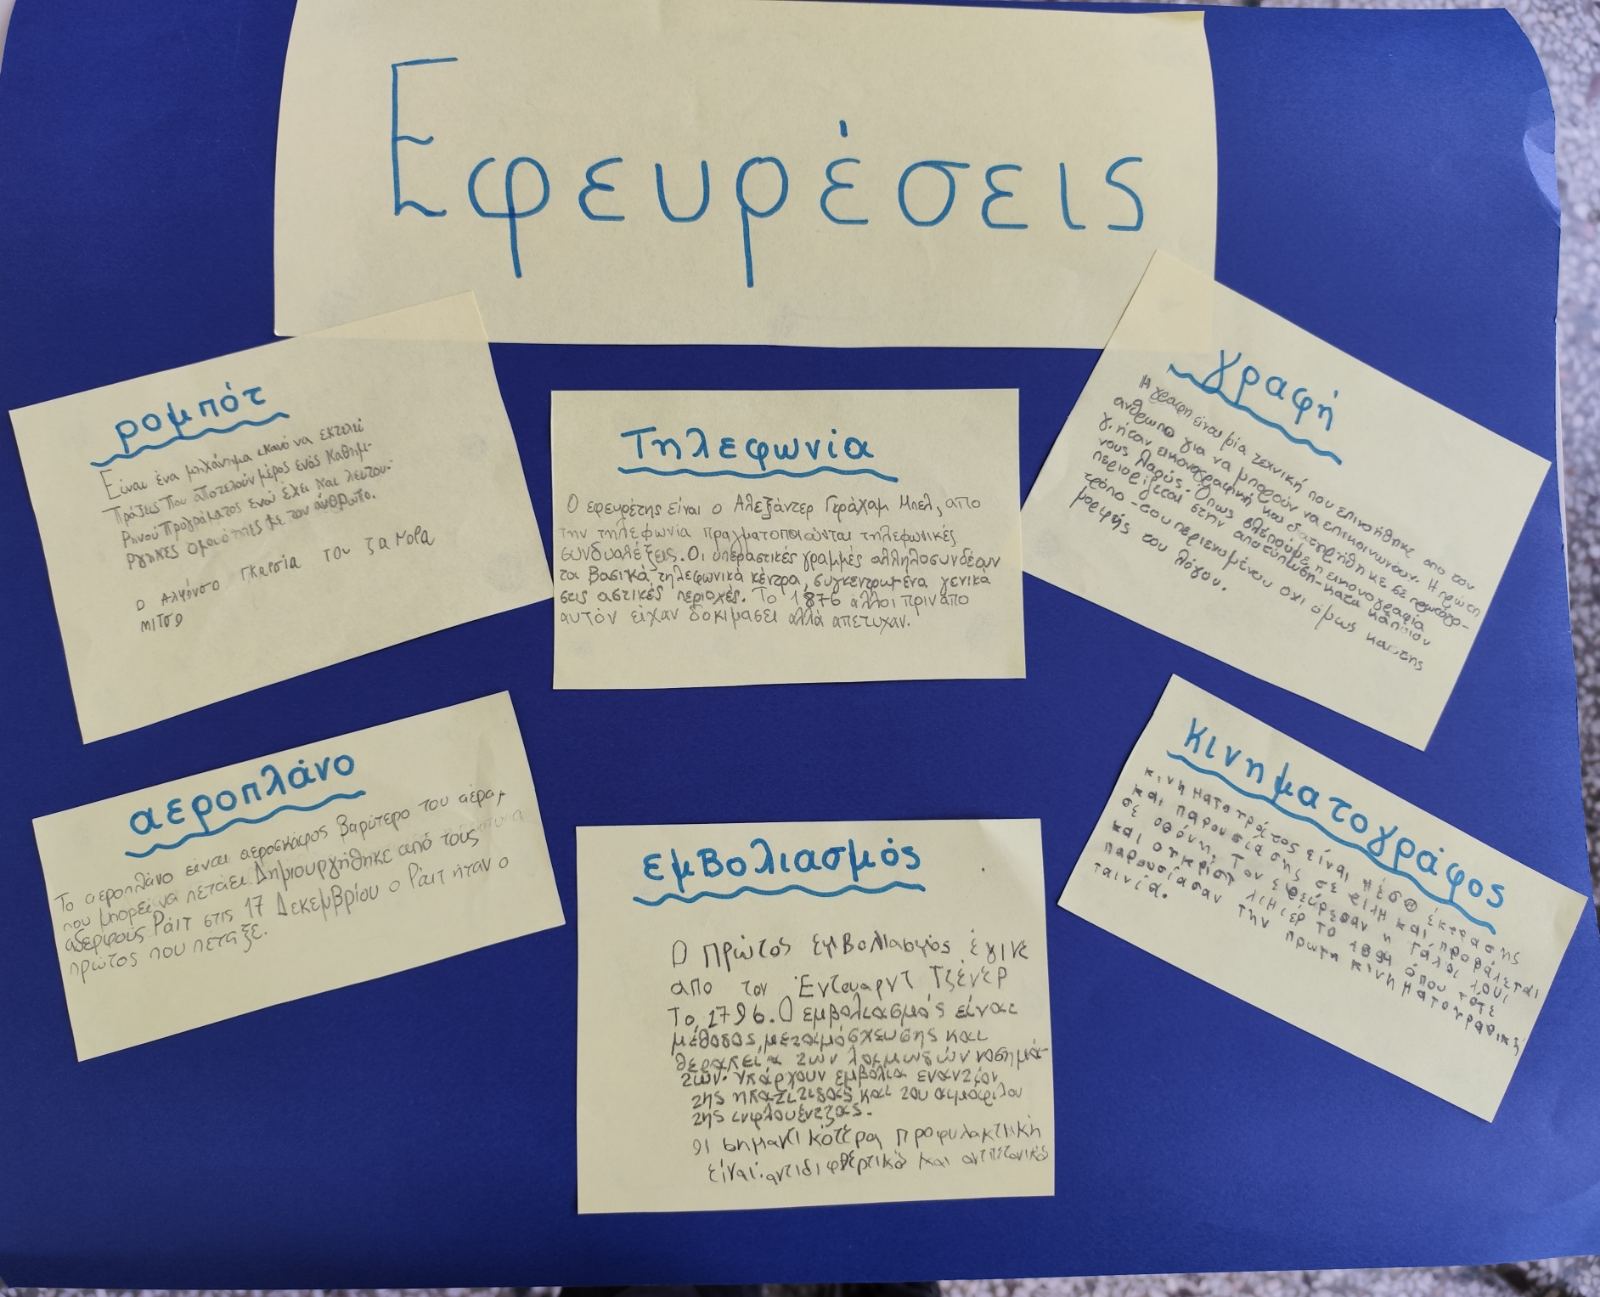 Εφευρέσεις
ρομπότ
Είναι ένα μηχάνημα ικανό να εκτελεί
πράξεις που αποτελούν μέρος ενός καθημ-
ρινού προγράματος ενού έχει και λειτου-
ργηκες ομοιότητες με τον άνθρωπο.
Ο Αλφόνσο Γκαρσία του ζαμορα
μιτσο
Τηλεφωνία
Ο εφευρέτης είναι ο Αλεξάντερ Γκράχαμ Μπελ, απο
την τηλεφωνία πραγματοποιώνται τηλεφωνικές
συνδυαλέξεις. Οι υπεραστικές γραμμές αλληλοσυνδέουν
τα βασικά τηλεφωνικά κέντρα, συγκεντρωμένα γενικά
στις αστικές περιοχές. Το 1876 άλλοι πριν απο
αυτόν είχαν δοκιμάσει αλλά απέτυχαν.
γραφή
Η γραφη είναι μία τεχνική που επινοήθηκε απο τον
ανθρωπο για να μπορούν να επικοινωνουν. Η πρώτη
γ. ήταν εικονογραφική και διατηρήθηκε σε πρωτόγο-
νους λαούς. Όπως βλέπουμε η εικονογραφία
περιορίζεται στην αποτύπωση-κατα κάποιον
τρόπο-του περιεχομένου οχι όμως και της
μορφής του λόγου.
αεροπλάνο
Το αεροπλάνο είναι αεροσκάφος βαρύτερο του αέρα,
που μπορεί να πετάξει. Δημιουργήθηκε από τους
αδερφούς Ράιτ στις 17 Δεκεμβρίου ο Ράιτ ήταν ο
πρώτος που πέταξε.
εμβολιασμός
Ο πρώτος εμβολιασμός έγινε
απο τον Έντουαρντ Τζένερ
Το 1796. Ο εμβολιασμός είναι
μέθοδος, μεταμόσχευσης και
θεραπεία των λοιμωδών νοσημά-
των. Υπάρχουν εμβόλια εναντίον
της ηπατιτιδας και του αιμοφιλου
της ινφλουέντζας.
οι σημαντικότερα προφυλακτική
είναι: αντιδιφθερτικό και αντιτετανικός
κινηματογράφος
κινηματογράφος είναι μέσο έκφρασης
και παρουσίασης σε φιλμ και προβάλεται
σε οθόνη. Τον εφεύρεσαν η Γάλοι Λουί
και Ογκίστ Λιμιέρ το 1894 όπου τότε
παρουσίασαν την πρώτη κινηματογραφική
ταινία.